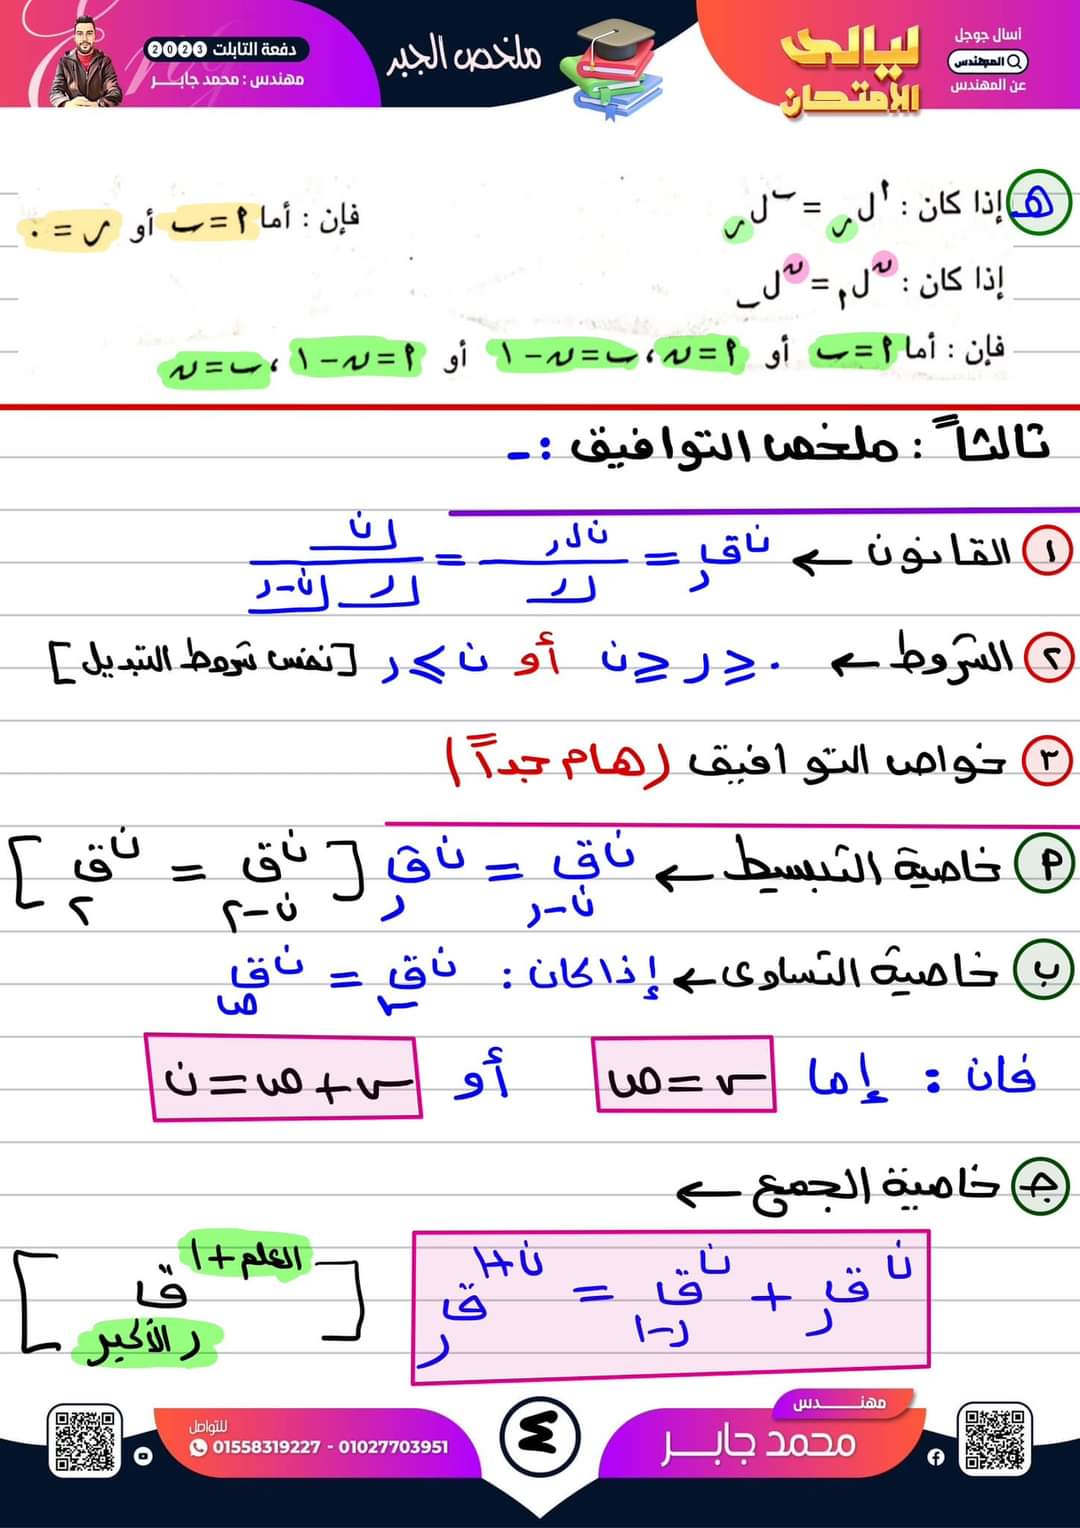 اسأل جوجل
المهندس
عن المهندس
ليالى
الامتحان
ملخص الجبر
دفعة التابلت 2023
مهندس : محمد جابر
هـ إذا كان : أل ر = ب ل ر فإن : أما أ = ب أو ر = ٠
إذا كان : ن ل أ = ن ل ب
فإن : أما أ = ب أو أ = ن ، ب = ن - ١ أو أ = ن - ١ ، ب = ن
ثالثاً : ملخص التوافيق :-
١ القانون ← ن ق ر = ن ل ر / ⌊ر = ⌊ن / ⌊ر ⌊ن-ر
٢ الشروط ← ٠ ≤ ر ≤ ن أو ن ≥ ر [نفس شروط التبديل]
٣ خواص التوافيق (هام جداً)
أ خاصية التبسيط ← ن ق ن-ر = ن ق ر [ن ق ن-٢ = ن ق ٢]
ب خاصية التساوى ← إذا كان : ن ق س = ن ق ص
فان : إما س = ص أو س + ص = ن
جـ خاصية الجمع ←
ن ق ر + ن ق ر-١ = ن+١ ق ر [العلم+١ ق ر الأكبر]
مهنـدس
محمد جابـر
٤
للتواصل
01558319227 - 01027703951